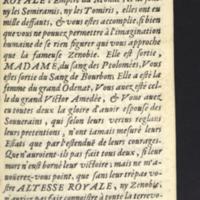 ROYALE l'Empire du Monde, ny
ny les Semiramis, ny les Tomiris, elles ont
deuãts, & vous estes accomplie, si bien
que vous ne pouuez permettre à l'imagination
humaine de se rien figurer qui vous approche
que la fameuse Zenobie. Elle est sortie
MADAME, du sang des Ptolomées, Vous
estes sortie du Sang de Bourbon. Elle a esté la
femme du grand Odenat, Vous auez esté cel-
le du grand Victor Amedée, & Vous auez
eu toutes deux la gloire d'auoir espousé des
Souuerains, qui selon leurs vertus reglans
leurs pretentions, n'ont iamais mesuré leurs
Estats que par l'estenduë de leurs courages.
Que n'auroient-ils pas fait tous deux, si leur
mort n'eust borné leur victoire; mais ne m'a-
uoüerez-vous point, que sans leur trépas vo-
stre ALTESSE ROYALE, ny Zenobie,
n'auriez pas fait connoistre à toute la terre